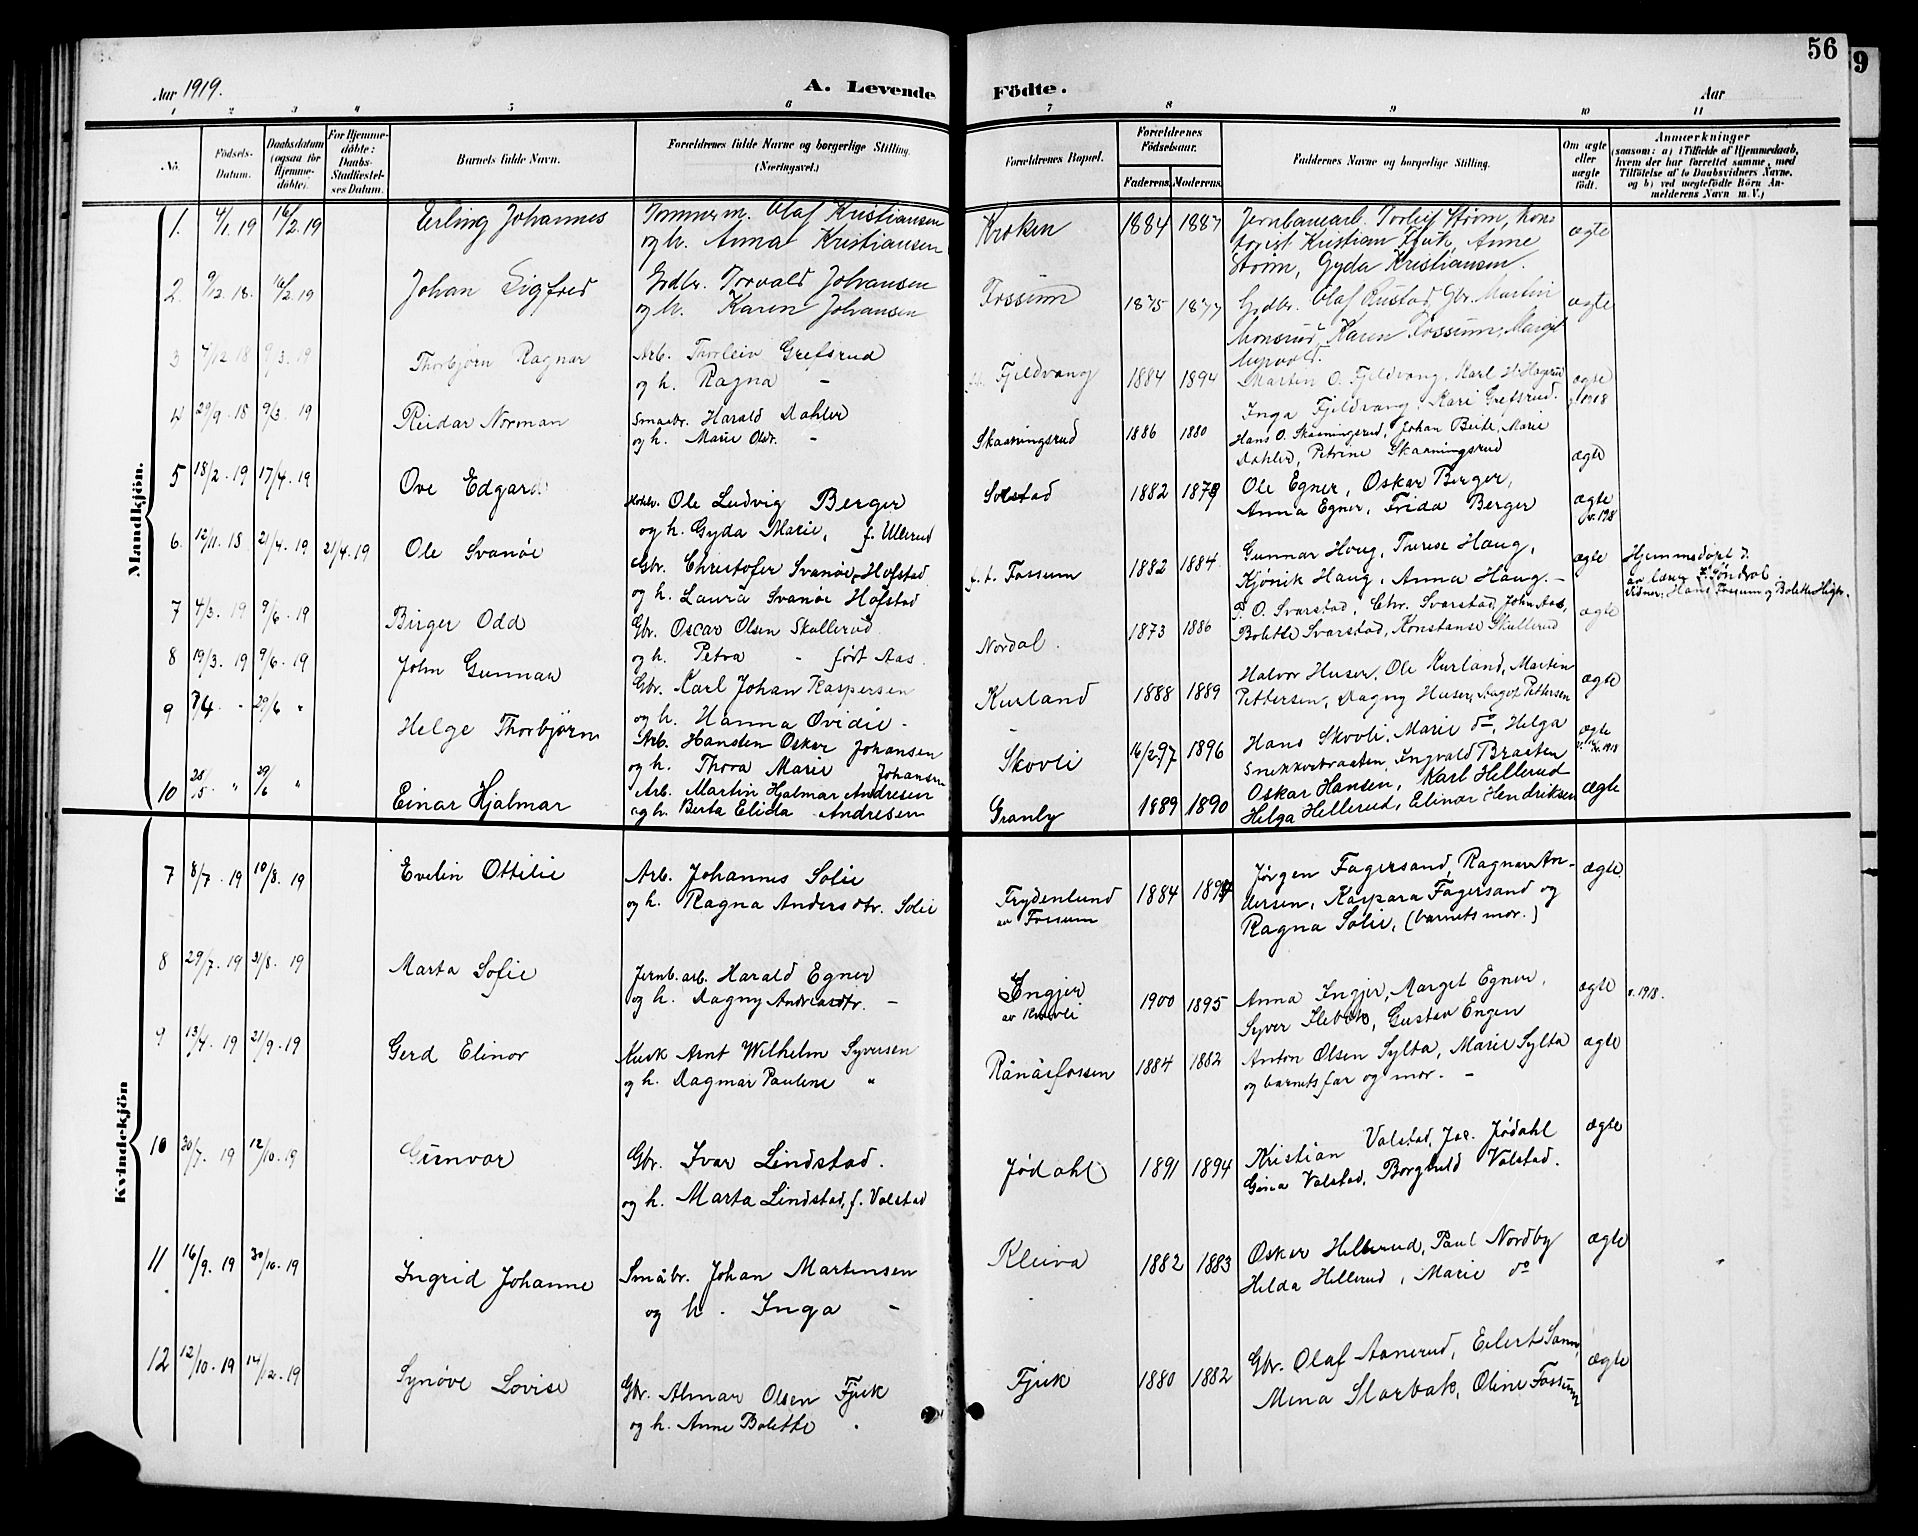 56
9
Aar 1919.
A. Levende Födte.
Aar
1 2 3 4 5 6 7 8 9 10 11
No.
Födsels-Datum.
Daabsdatum (ogsaa for Hjemme-döbte).
For Hjemme-döbte: Daabs-Stadfæstel-ses Datum.
Barnets fulde Navn.
Forældrenes fulde Navne og borgerlige Stilling. (Næringsvei.)
Forældrenes Bopæl.
Forældrenes Födselsaar.
Faderens. Moderens.
Faddernes Navne og borgerlige Stilling.
Om ægte eller uægte födt.
Anmærkninger
(saasom: a) i Tilfælde af Hjemmedaab,
hvem der har forrettet samme, med
Tilföielse af to Daabsvidners Navne,
og b) ved uægtefödte Börn An-
melderens Navn m. V.)
Mandkjön.
1. 4/1. 19 16/2. 19 Erling Johannes Tømmerm. Olaf Kristiansen Kroken 1884 1887 Jernbanearb. Torleif Strøm, kon-
og h. Anna Kristiansen torist Kristian Fjuk, Anne
Strøm, Gyda Kristiansen.
ægte
2. 9/12. 18. 16/2. 19 Johan Sigfred Grdbr. Torvald Johansen Fossum 1875 1877 Grdbr. Olaf Rustad, Gbr. Martin ægte
og h. Karen Johansen Monsrud, Karen Fossum, Margit
3 7/12 18 9/3. 19 Thorbjørn Ragnar Arb. Thorleiv Grefsrud Fjeldvang 1884 1894 Marten O. Fjeldvang, Karl ægte
og h. Ragna - Inga Fjeldvang, Kari Grefsrud. 1918
4 29/9. 18 9/3. 19 Reidar Norman Smaabr. Harald Dahler Skaaningsrud 1886 1880 Hans O. Skaaningsrud, Johan Beite, Marie
og h. Marie Olsdr. - Dahler, Petrine Skaaningsrud ægte
5 18/2. 19 17/4. 19 Ove Edgard Ole Ludvig Berger Solstad 1882 1879 Ole Egner, Oskar Berger,
og h. Gyda Marie, f. Ullerud Anna Egner, Frida Berger ægte
6. 12/11. 18 21/4. 19 21/4. 19 Ole Svanöe Gbr. Christofer Svanöe Hofstad f. t. Fossum 1882 1884. Gunnar Haug, Therese Haug, ægte Hjemmedøpt
og h. Laura Svanöe Hofstad Kjönik Haug, Anna Haug. -
Vidner: Hans Fossum og Bolette
7 4/3. 19 9/6. 19 Birger Odd Gbr. Oscar Olsen Skullerud Nordal. 1873 1886 P. O. Svarstad, Chr. Svarstad, John Aas, ægte
og h. Petra - født Aas. Bolette Svarstad, Konstanse Skullerud
8 19/3. 19 9/6. 19 John Gunnar Gbr. Karl Johan Kaspersen Kurland 1888 1889 Halvor Huser, Ole Kurland, Martin ægte
og h. Hanna Ovidie - Pettersen, Dagny Huser, Aagot Pettersen
9 8/4. " 29/6 " Helge Thorbjørn Arb. Hansten Oskar Johansen Skovli 16/2.97 1896 Hans Skovli, Marie do, Helga ægte
og h. Thora Marie Johansen Snekkerbraaten, Ingvald Braaten
10 28/5. " 29/6 " Einar Hjalmar Arb. Martin Hjalmar Andresen Granly 1889 1890 Oskar Hansen, Karl Hellerud ægte
og h. Berta Elida Andresen Helga Hellerud, Elinor Hendriksen
Kvindekjön
7 8/7. 19 10/8. 19 Evelin Ottilie Arb. Johannes Solie Frydenlund 1884 1894 Jørgen Fagersand, Ragnar An- ægte
og h. Ragna Andersdtr. Solie av Fossum dersen, Kaspara Fagersand og
Ragna Solie, (barnets mor.)
8 29/7. 19 31/8. 19 Marta Sofie Jernb. arb. Harald Egner Engjer 1900 1895 Anna Ingjer, Margit Egner, ægte v. 1918.
og h. Dagny Andreasdtr. - Syver Ilebek, Gustav Engen
9 13/4. 19 21/9. 19 Gerd Elinor Kusk Arnt Wilhelm Syversen Rånåsfossen 1884 1882 Anton Olsen Sylta, Marie Sylta ægte
og h. Dagmar Pauline " og barnets far og mor. -
10 30/7. 19 12/10. 19 Gunvor Gbr. Ivar Lindstad. Jødahl 1891 1894 Kristian Valstad, Jac. Jødahl ægte
og h. Marta Lindstad, f. Valstad Gina Valstad, Borghild Valstad.
11 16/9. 19 30/10. 19 Ingrid Johanne Småbr. Johan Martinsen Kleiva 1882 1883 Oskar Hellerud, Paul Nordby ægte
og h. Inga - Helda Hellerud, Marie do
12 12/10. 19 14/12. 19 Synøve Lovise Gbr. Almar Olsen Fjuk Fjuk 1880 1882 Gbr. Olaf Aanerud, Eilert Sann, ægte
og h. Anne Bolette " Mina Storbak, Oline Fossum